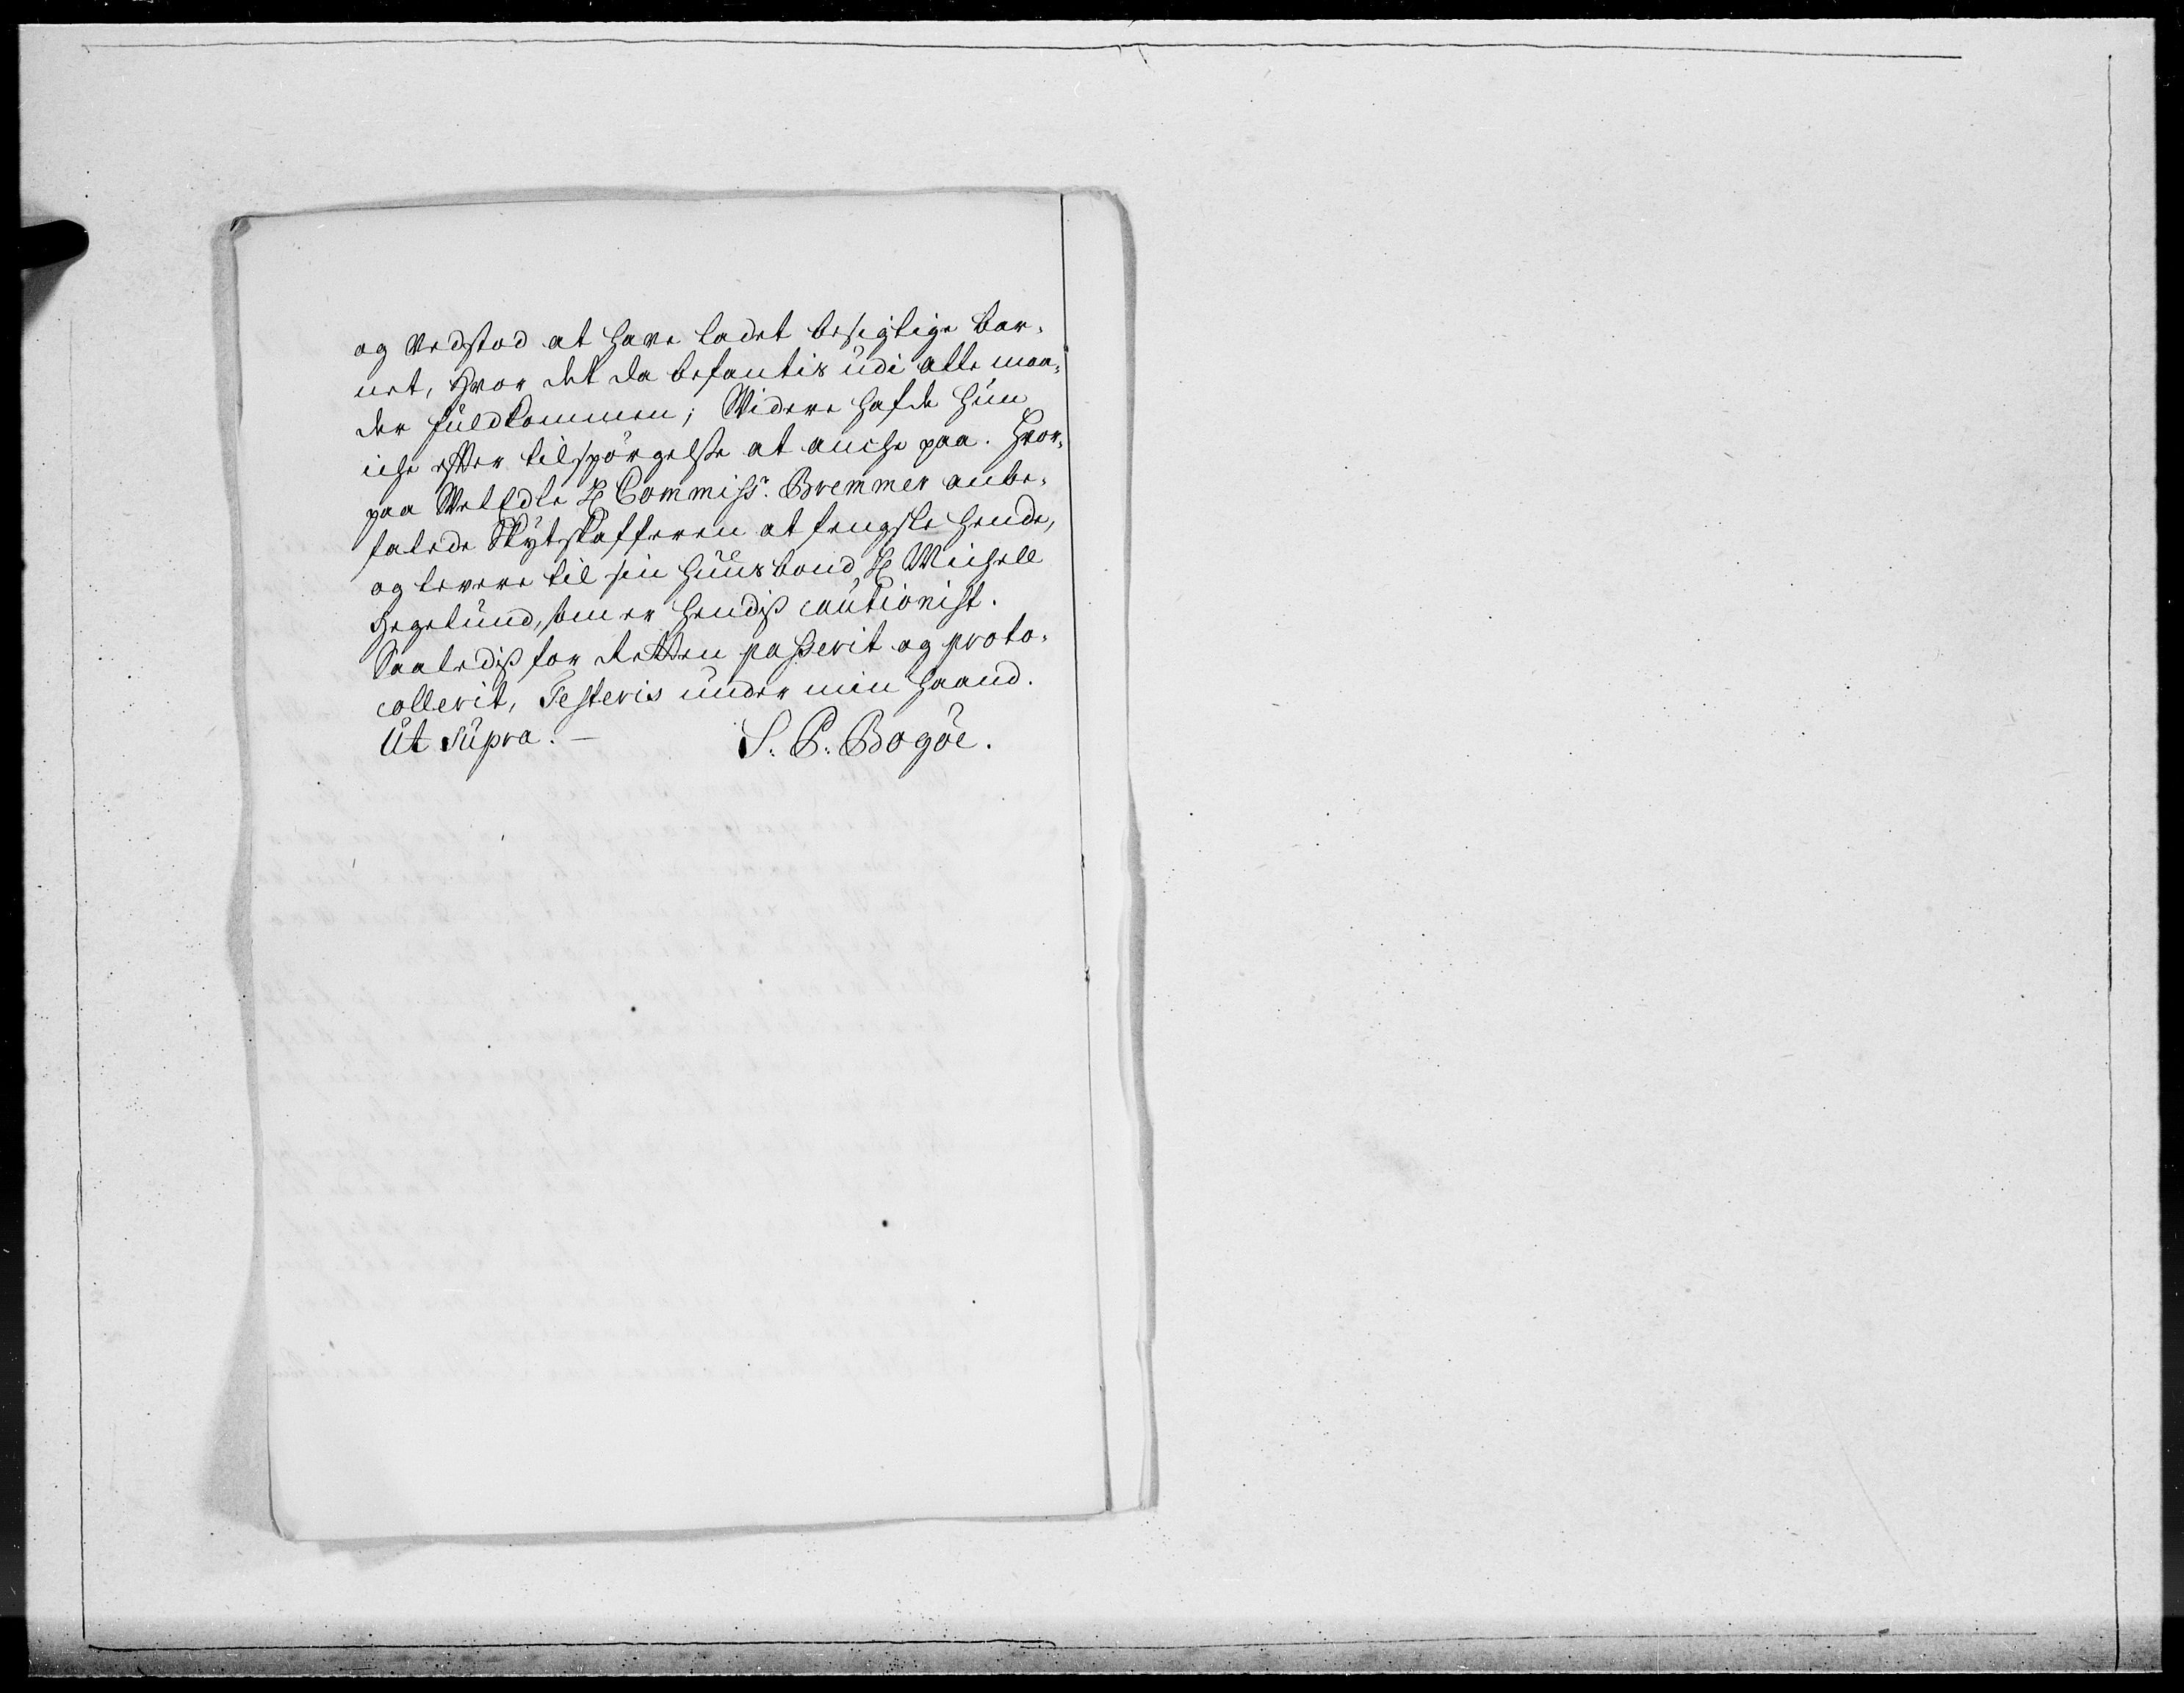 og vedstod at have ladet besigtige bar,
net, hvor det da befantis udi alle maa,
der fuldkommen; Widere hafde hun
iche efter tilspørgelse at anche paa. Hvor,
paa WelEdle Hr Commissr. Bremmer anbe,
falede Skytskafferen at fengsle hende,
og levere til sin Huusbond Hr Michell
Hegelund, som er hendiß cautionist.
Saalediß for Retten passerit og proto,
collerit, Testeris under min haand.
Ut Supra. —
S. P. Bogøe.